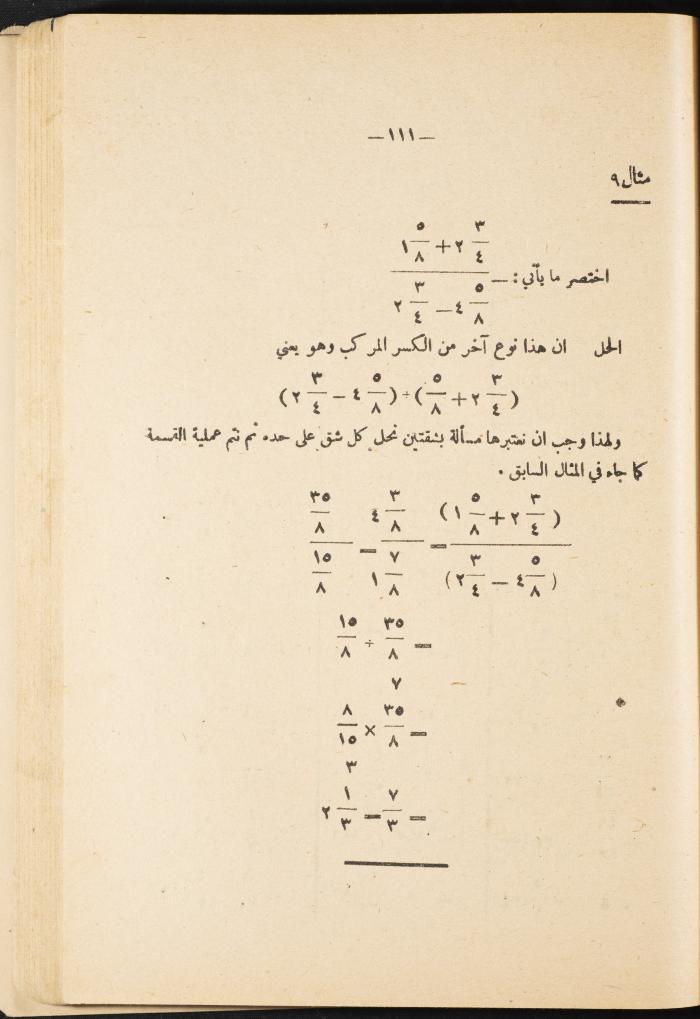 —١١١—
مثال ٩
اختصر ما يأتي : — (٢ ٣/٤ + ١ ٥/٨) / (٤ ٥/٨ — ٢ ٣/٤)
الحل ان هذا نوع آخر من الكسر المركب وهو يعني
(٢ ٣/٤ + ٥/٨) ÷ (٤ ٥/٨ — ٢ ٣/٤)
ولهذا وجب ان نعتبرها مسألة بشقتين نحل كل شق على حده ثم نتم عملية القسمة
كما جاء في المثال السابق .
(٢ ٣/٤ + ١ ٥/٨) / (٤ ٥/٨ — ٢ ٣/٤) = ٤ ٣/٨ / ١ ٧/٨ = ٣٥/٨ / ١٥/٨
= ٣٥/٨ ÷ ١٥/٨
٧
= ٣٥/٨ × ٨/١٥
٣
= ٧/٣ = ٢ ١/٣